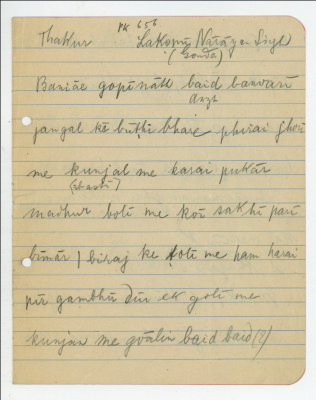 PK 656
Thakur Lakṣmī Nārāyan Siṅh
(Gonda)
Baniāe gopīnāth baid banvārī
jangal kē buṭhī bhare phirai jhorī
me kunjal me karai pukār
madhur bolī me koī sakhī parī
bīmār / biraj ke ṭolī me ham karai
pīr gambhīr dūr ek golī me
kunjan me gvālin baid baid (?)